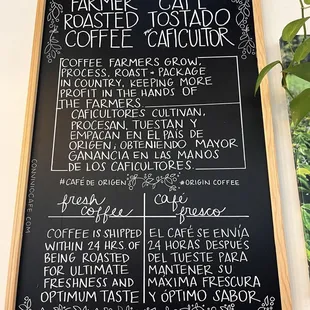 FARMER CAFÉ
ROASTED TOSTADO
COFFEE CAFICULTOR
COFFEE FARMERS GROW,
PROCESS, ROAST + PACKAGE
IN COUNTRY, KEEPING MORE
PROFIT IN THE HANDS OF
THE FARMERS
CAFICULTORES CULTIVAN,
PROCESAN, TUESTAN Y
EMPACAN EN EL PAIS DE
ORIGEN, OBTENIENDO MAYOR
GANANCIA EN LAS MANOS
DE LOS CAFICULTORES
#CAFÉ DE ORIGEN #ORIGIN COFFEE
fresh coffee
COFFEE IS SHIPPED
WITHIN 24 HRS. OF
BEING ROASTED
FOR ULTIMATE
FRESHNESS AND
OPTIMUM TASTE
café fresco
EL CAFÉ SE ENVÍA
24 HORAS DESPUÉS
DEL TUESTE PARA
MANTENER SU
MÁXIMA FRESCURA
Y ÓPTIMO SABOR
CONVIVIOCAFE.COM